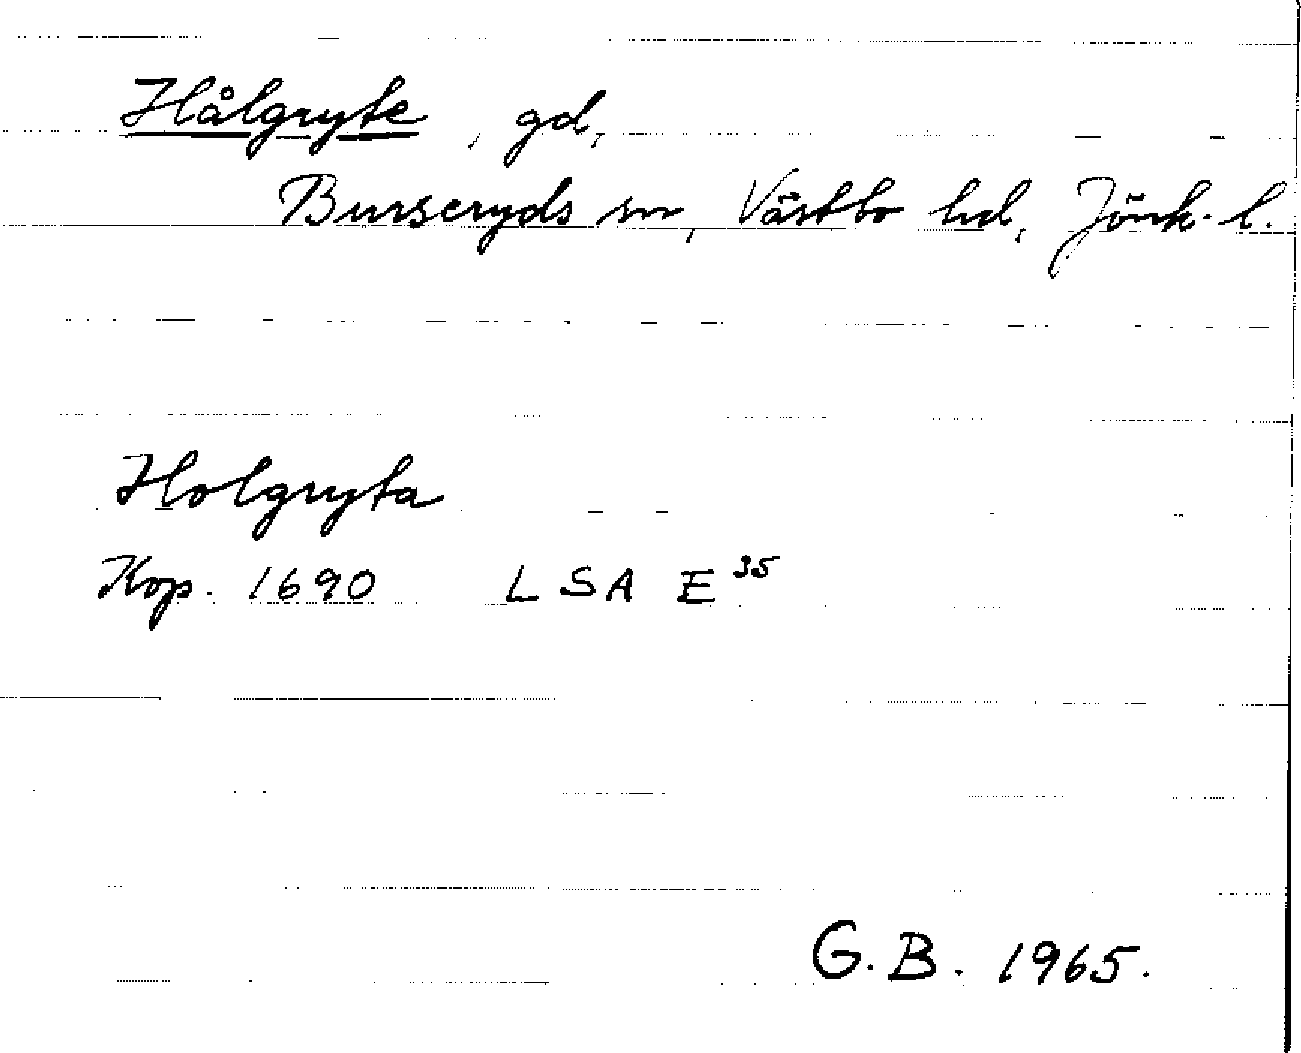 Hålgryte, gd,
Burseryds sn, Västbo hd, Jönk. l.
Holgryta
Kop. 1690 LSA E 35
G.B. 1965.